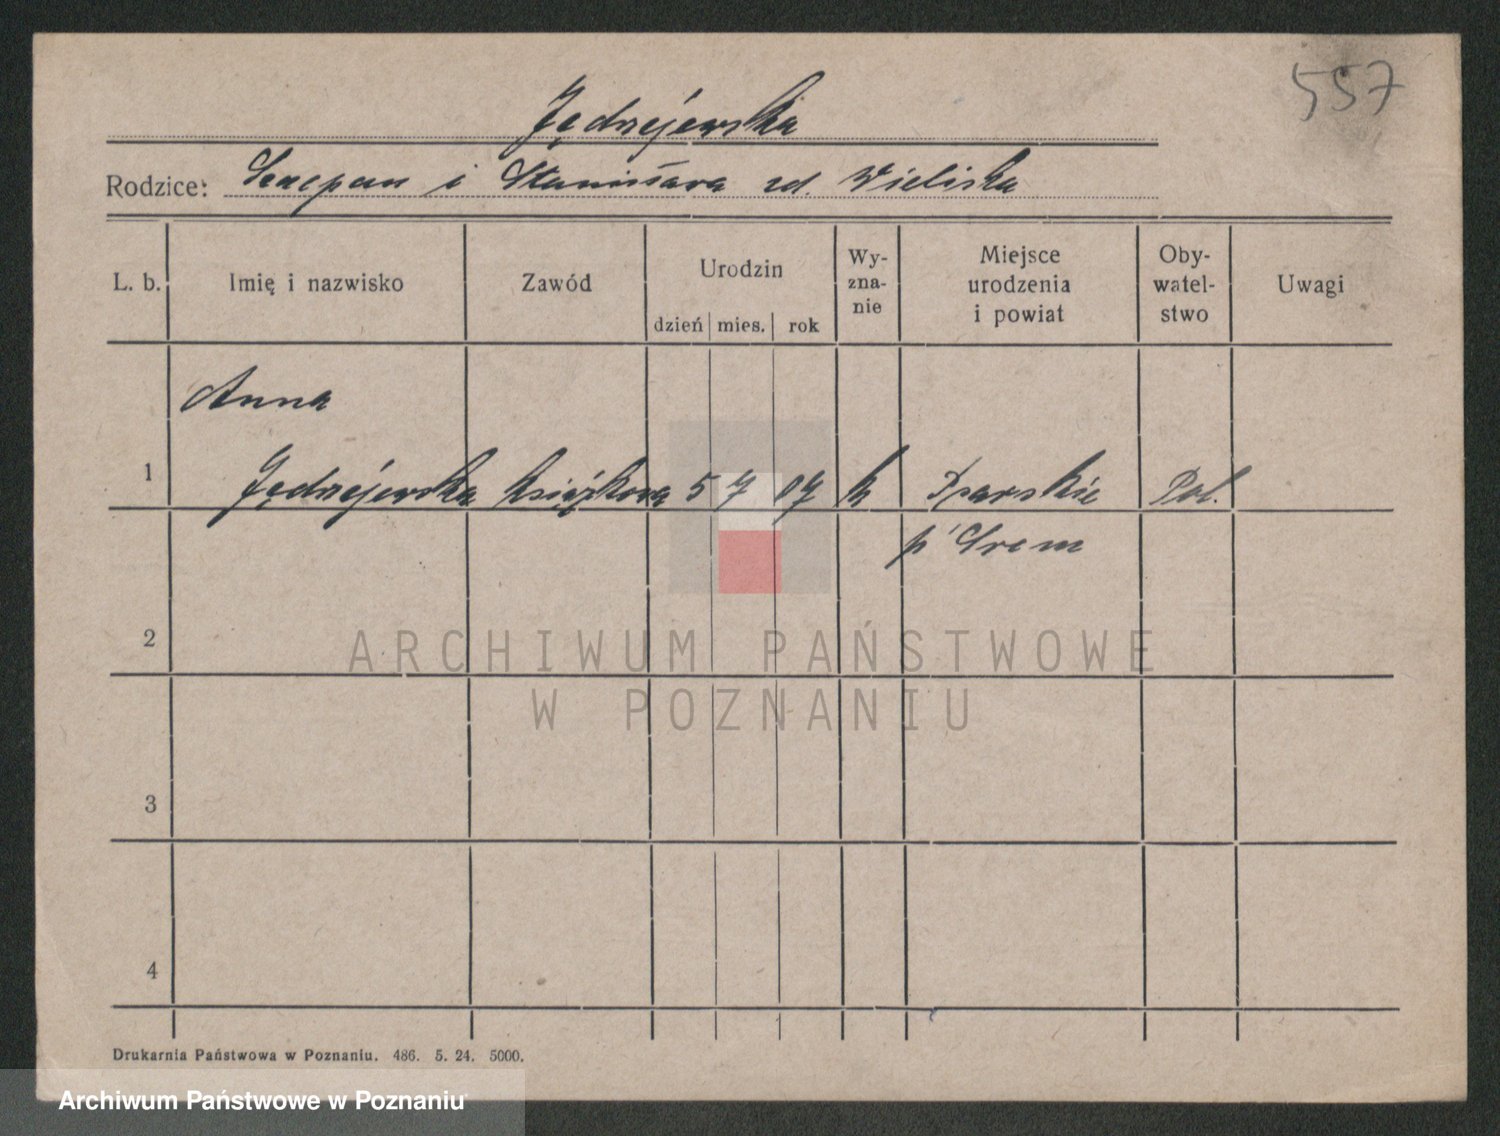 557
Jędrzejewska
Rodzice: Szczepan i Stanisława zd. Wieliska
L. b. Imię i nazwisko Zawód Urodzin dzień mies. rok Wy-zna-nie Miejsce urodzenia i powiat Oby-watel-stwo Uwagi
Anna
1 Jędrzejewska książkowa 5 7 07 k Pol.
p. Śrem
2
3
4
ARCHIWUM PAŃSTWOWE
W POZNANIU
Drukarnia Państwowa w Poznaniu. 486. 5. 24. 5000.
Archiwum Państwowe w Poznaniu